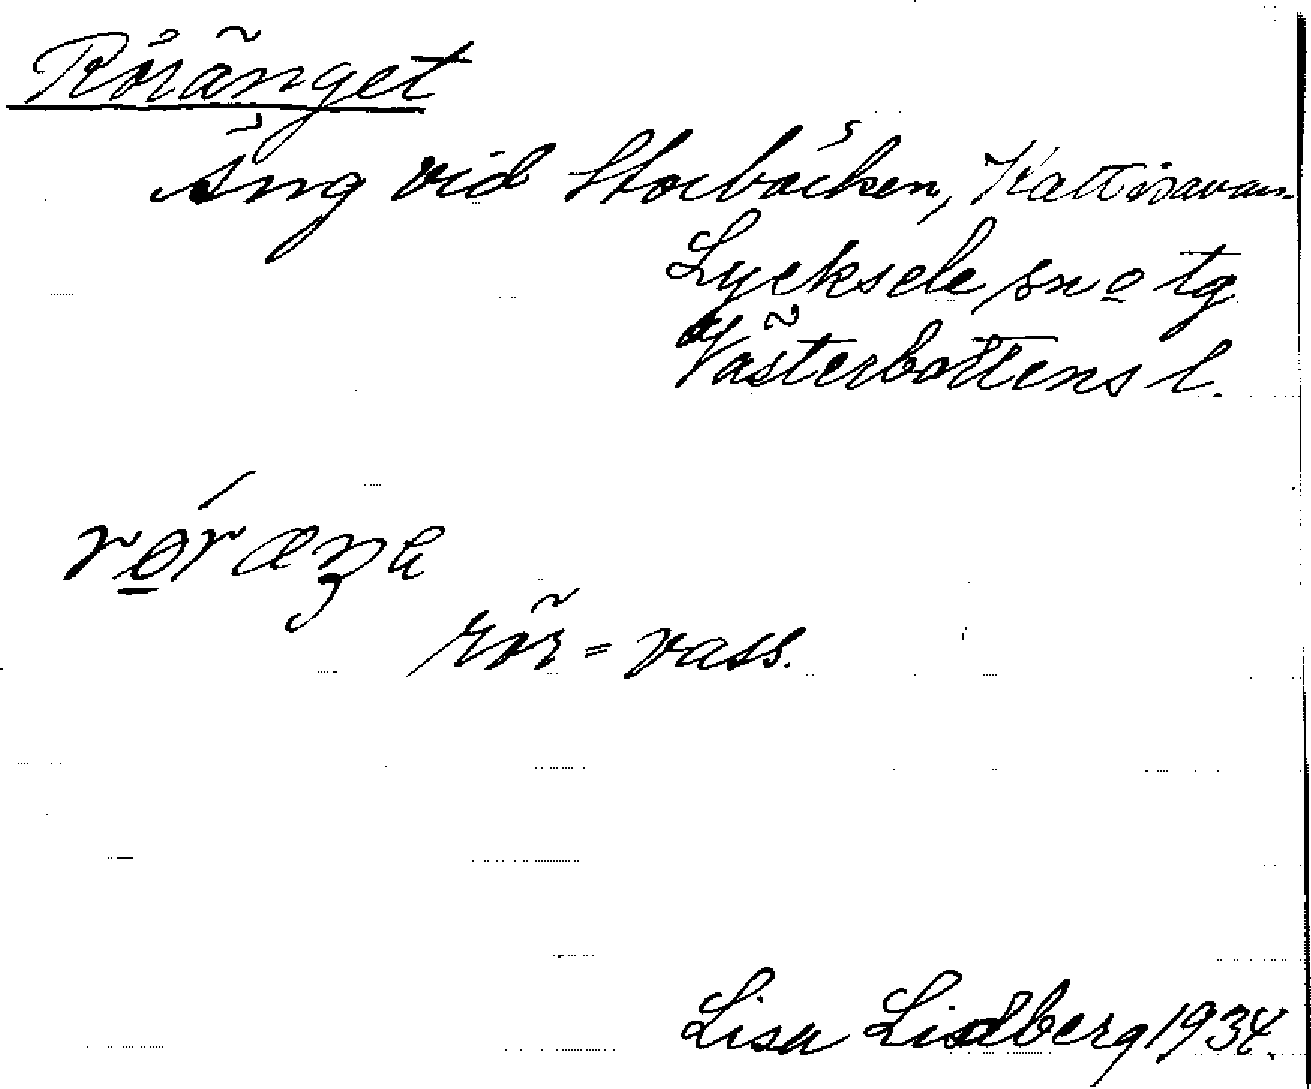 Röränget
Äng vid Storbäcken, Kattisavan
Lycksele sn o tg
Västerbottens l.
rö́ræŋe
rör = vass.
Lisa Lidberg 1934.